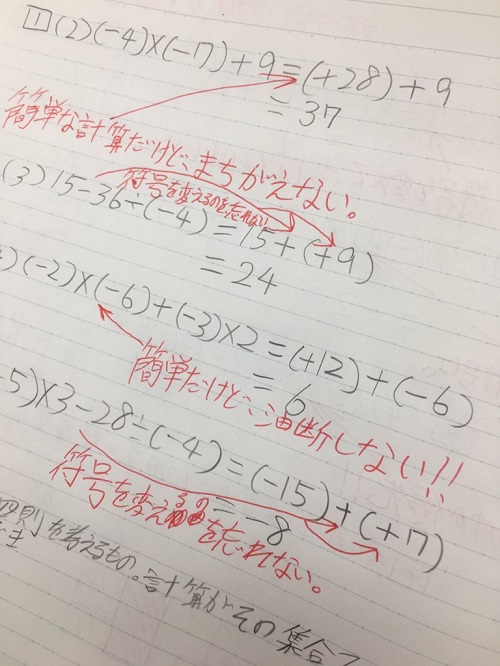 1 (2) (-4)×(-7)+9=(+28)+9
=37
簡単な計算だけど、まちがえない。
(3) 15-36÷(-4)=15+(+9)
符号を変えるのを忘れない
=24
(-2)×(-6)+(-3)×2=(+12)+(-6)
=6
簡単だけど、油断しない!!
-5)×3-28÷(-4)=(-15)+(+7)
=-8
符号を変えるのを忘れない。
四則を考えるもの。計算がその集合